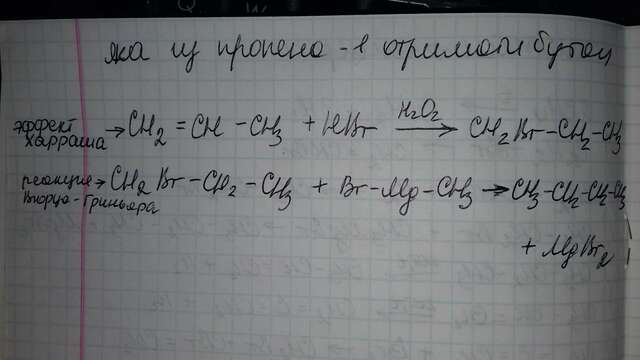 яка из пропена -1 отримати бутан
эффект Харраша → CH₂ = CH - CH₃ + HBr H₂O₂ → CH₂Br-CH₂-CH₃
реакция Вюрца-Гриньяра → CH₂Br-CH₂-CH₃ + Br-Mg-CH₃ → CH₃-CH₂-CH₂-CH₃
+ MgBr₂